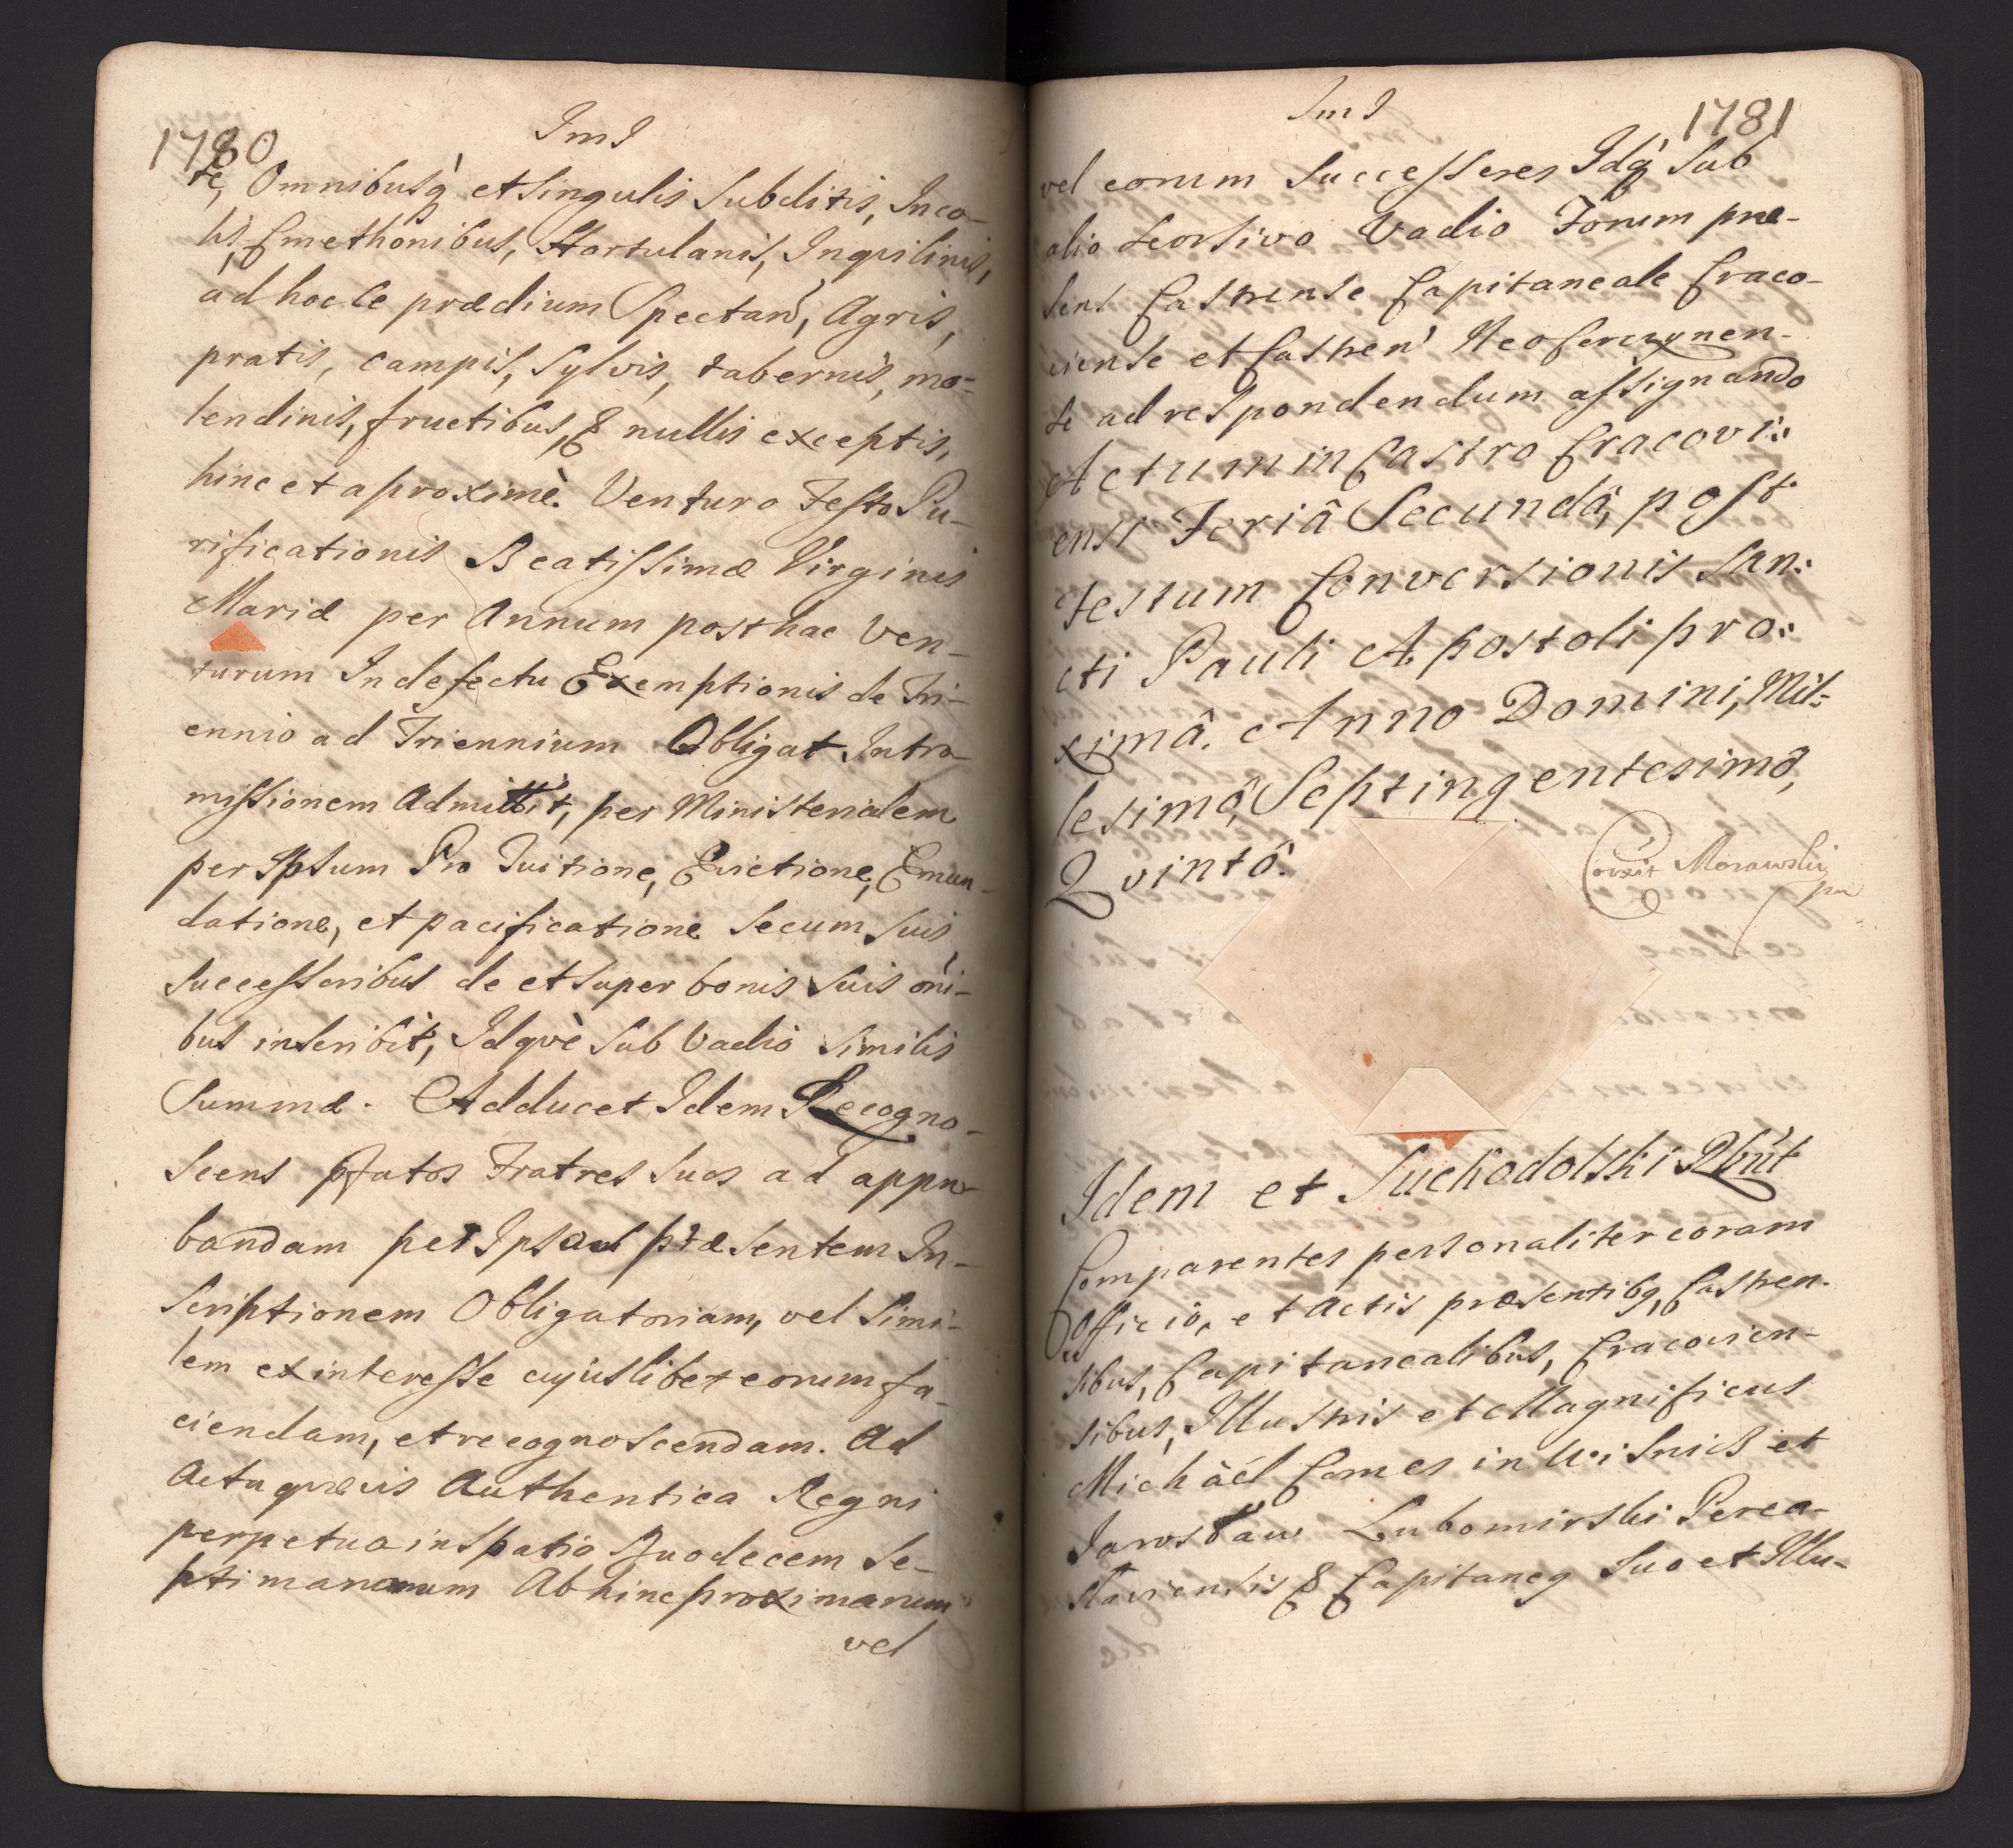 1780
ImJ
te, Omnibusq́ et singulis Subditis, Inco-
lis, Cmethonibus, Hortulanis, Inqvilinis,
ad hocce prædium Spectan̄, Agris,
pratis, campis, Sylvis, tabernis, mo-
lendinis, fructibus, & nullis exceptis,
hinc et a proximè Venturo Festo Pu-
rificationis Beatissimæ Virginis
Mariæ per Annum posthac Ven-
turum In defectu Exemptionis de Tri-
ennio ad Triennium Obligat Intro-
missionem Admittit, per Ministerialem
per Ipsum Pro Tuitione, Evictione, Emun-
datione, et pacificatione Secum Suis
Successoribus de et super bonis Suis oḿi-
bus inscribit, Idqvè Sub Vadio Similis
Summæ. Adducet Idem Recogno-
scens pfatos Fratres Suos ad appro-
bandam per Ipsos præsentem In-
scriptionem Obligatoriam, vel Simi-
lem ex interesse cujuslibet eorum fa-
ciendam, et recognoscendam. Ad
Acta qvævis Authentica Regni
perpetua in Spatio Duodecem Se-
ptimanarum Abhinc proximarum
vel
ImJ
1781
vel eorum Successeres Idq́ Sub
alio seorsivo Vadio Forum præ-
sens Castrense Capitaneale Craco-
viense et Castren' Neoserczynen-
se ad respondendum assignando
Actum in Castro Cracovi:
ensi Feriâ Secundâ, post
Festum Conversionis San:
cti Pauli Apostoli pro:
ximâ. Anno Domini, Mil:
lesimô, Septingentesimô,
Qvintô.
Corrit Morawski
Idem et Suchodolski Rḱut
Comparentes personaliter coram
Officio, et Actis præsentibq, Castren-
sibus, Capitanealibus, Cracovien-
sibus, Illustris et Magnificus
Michàél Comes in Wisnicz et
Jarosław Lubomirski Perea-
slaviensis & Capitaneq Suo et Illu-